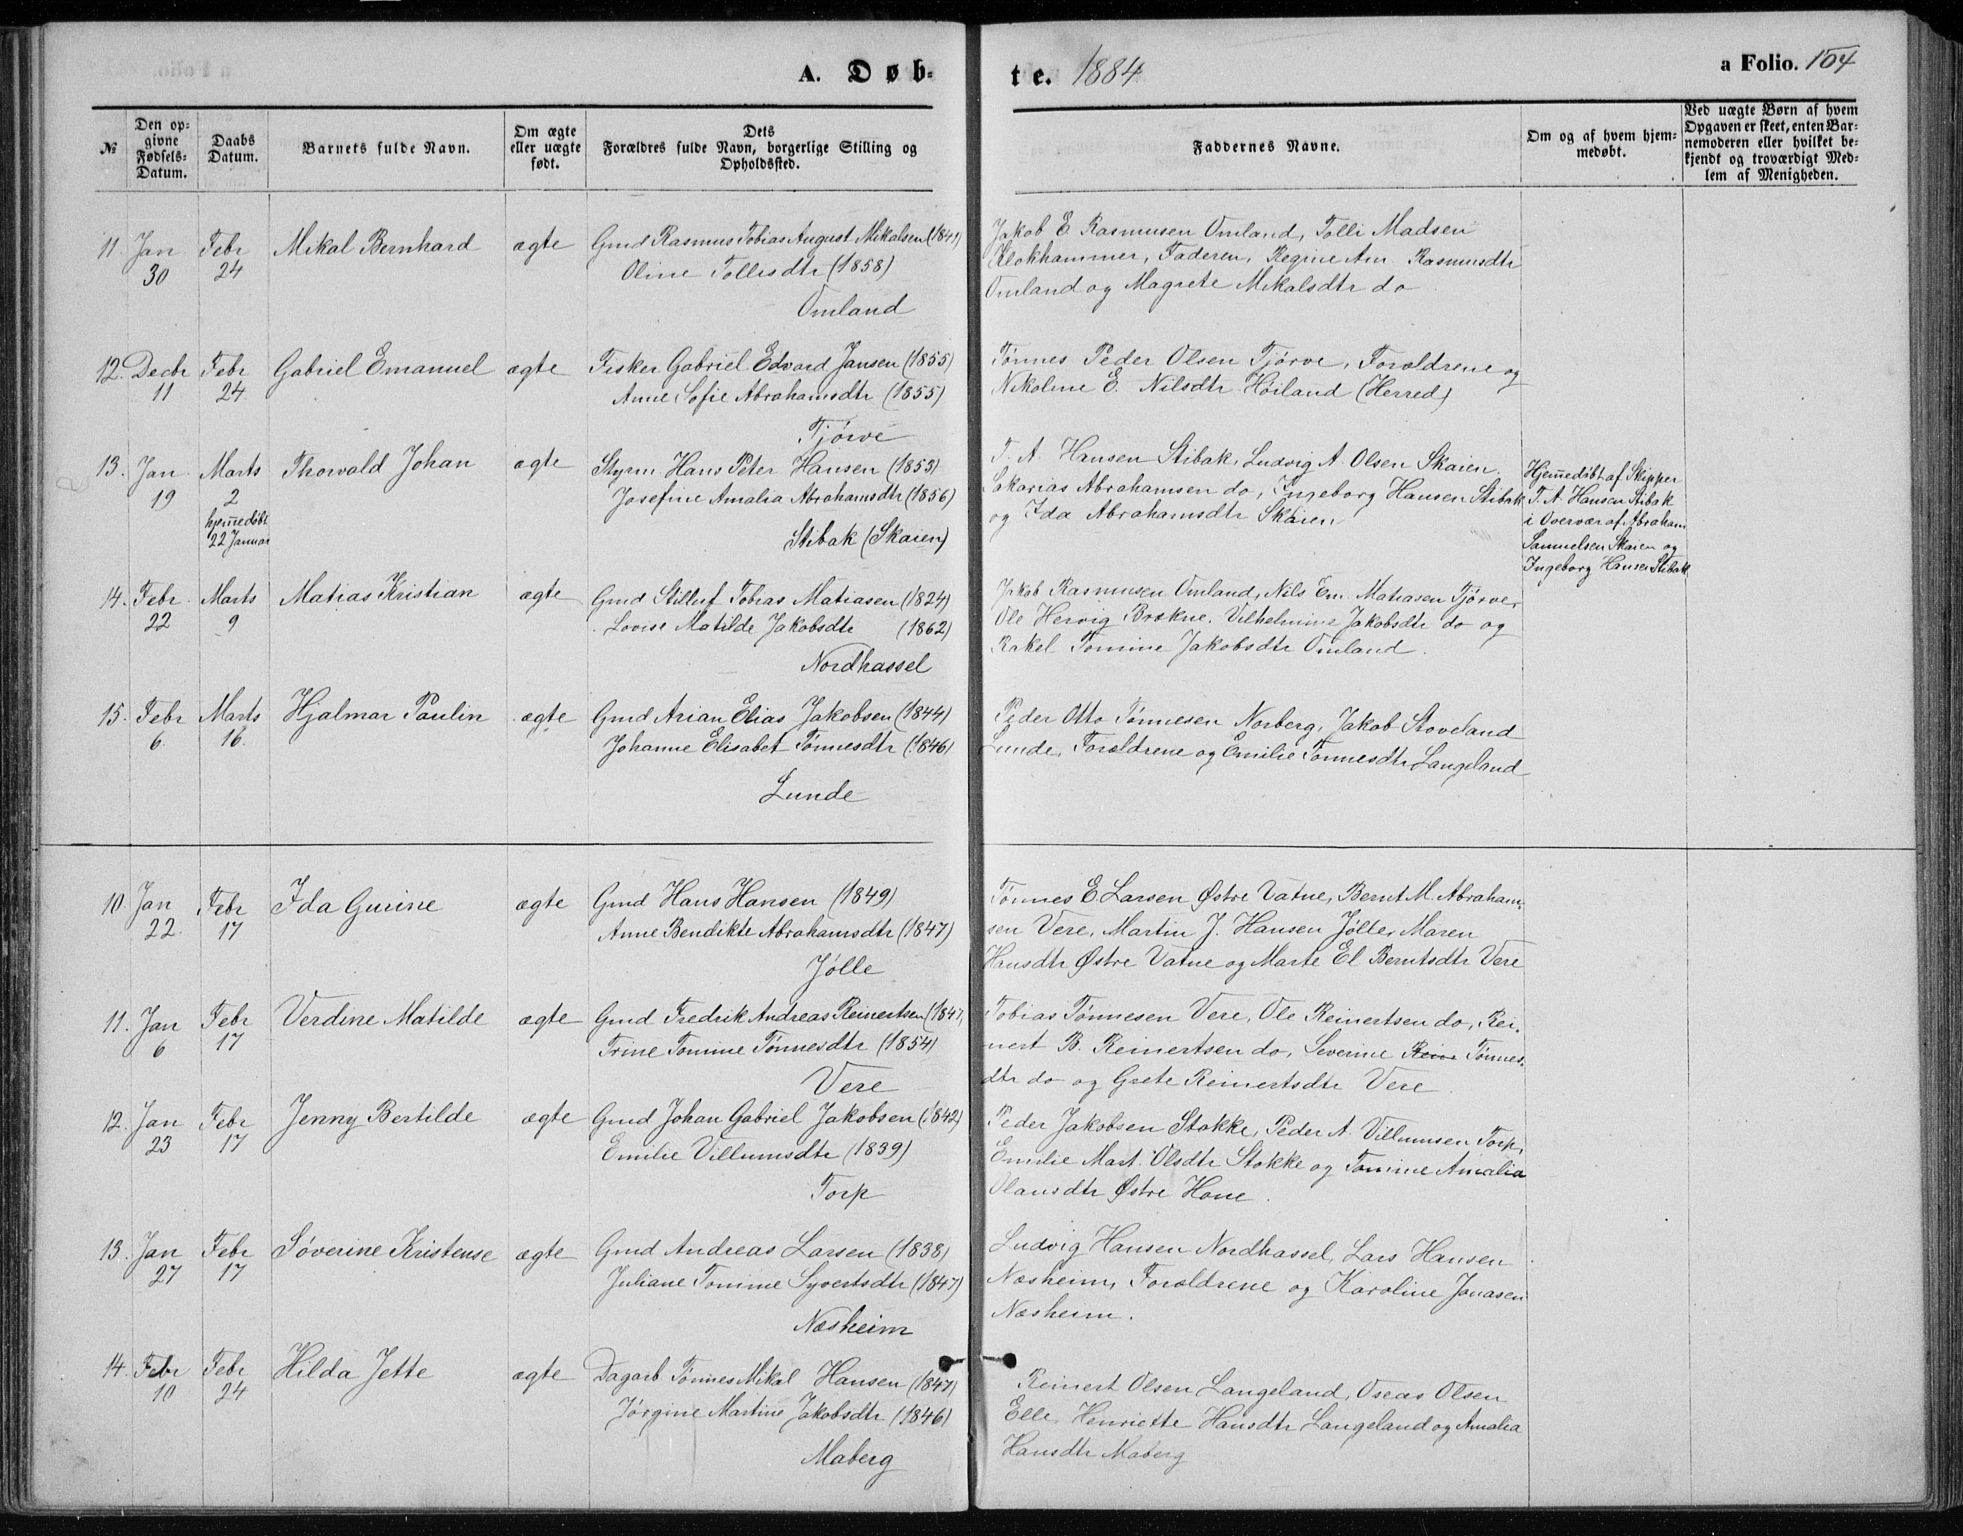 A. Døb-
te. 1884
a Folio. 104
№
Den op-
givne
Fødsels-
Datum.
Daabs
Datum.
Barnets fulde Navn.
Om ægte
eller uægte
født.
Dets
Forældres fulde Navn, borgerlige Stilling og
Opholdssted.
Faddernes Navne.
Om og af hvem hjem-
medøbt.
Ved uægte Børn af hvem
Opgaven er skeet, enten Bar-
nemoderen eller hvilket be-
kjendt og troværdigt Med-
lem af Menigheden.
11. Jan Febr Mikal Bernhard ægte Gmd Rasmus Tobias August Mikalsen (1841)
30 24 Oline Tollisdtr (1858)
Omland
Jakob E. Rasmusen Omland, Tolli Madsen
Klokhammer, Faderen, Regine Am. Rasmusdtr
Omland og Magrete Mikalsdtr do
12. Decbr Febr Gabriel Emanuel ægte Fisker Gabriel Edvard Jansen (1855)
11 24 Anne Sofie Abrahamsdtr (1855)
Tjørve
Tønnes Peder Olsen Tjørve, Forældrene og
Nikoline E. Nilsdtr Høiland (Herred)
13. Jan Marts Thorvald Johan ægte Styrm Hans Peter Hansen (1853)
19 2 Josefine Amalia Abrahamsdtr (1856)
hjemedøbt
22 Januar Stibak (Skaien)
T. A. Hansen Stibak, Ludvig A. Olsen Skaien,
Sakarias Abrahamsen do, Ingeborg Hansen Stibak
og Ida Abrahamsdtr Skaien
Hjemedøbt af Skipper
T. A. Hansen Stibak
i Overvær af Abraham
Samuelsen Skaien og
Ingeborg Hansen Stibak
14. Febr Marts Matias Kristian ægte Gmd Stilluf Tobias Matiasen (1824)
22 9 Lovise Matilde Jakobsdtr (1862)
Nordhassel
Jakob Rasmusen Omland, Nils Em. Matiasen Tjørve,
Ole Hervig Brækne, Vilhelmine Jakobsdtr do og
Rakel Tomine Jakobsdtr Omland.
15. Febr Marts Hjalmar Paulin ægte Gmd Arian Elias Jakobsen (1844)
6. 16. Johanne Elisabet Tønnesdtr (1846)
Lunde
Peder Otto Tønnesen Norberg, Jakob Stoveland
Lunde, Forældrene og Emilie Tønnesdtr Langeland
10. Jan Febr Ida Gurine ægte Gmd Hans Hansen (1849)
22. 17 Anne Bendikte Abrahamsdtr (1847)
Jølle
Tønnes E. Larsen Østre Vatne, Bernt M. Abraham-
sen Vere, Martin J. Hansen Jølle, Maren
Hansdtr Østre Vatne og Marte El Berntsdtr Vere
11. Jan Febr Verdine Matilde ægte Gmd Fredrik Andreas Reinertsen (1847)
6 17 Trine Tomine Tønnesdtr (1854)
Vere
Tobias Tønnesen Vere, Ole Reinertsen do, Rei-
nert B. Reinertsen do, Severine Rein Tønnes-
dtr do og Grete Reinertsdtr Vere
12. Jan Febr Jenny Bertilde ægte Gmd Johan Gabriel Jakobsen (1842)
23 17 Emilie Villumsdtr (1839)
Torp
Peder Jakobsen Stokke, Peder A. Villumsen Torp,
Emilie Mart. Olsdtr Stokke og Tomine Amalia
Olausdtr Østre Hone.
13. Jan Febr Søverine Kristense ægte Gmd Andreas Larsen (1838)
27 17 Juliane Tomine Syvertsdtr (1847)
Næsheim
Ludvig Hansen Nordhassel, Lars Hansen
Næsheim, Forældrene og Karoline Jonasen
Næsheim.
14. Febr Febr Hilda Jette ægte Dagarb Tønnes Mikal Hansen (1847)
10 24 Jørgine Martine Jakobsdtr (1846)
Maberg
Reinert Olsen Langeland, Oseas Olsen
Elle, Henriette Hansdtr Langeland og Amalia
Hansdtr Maberg